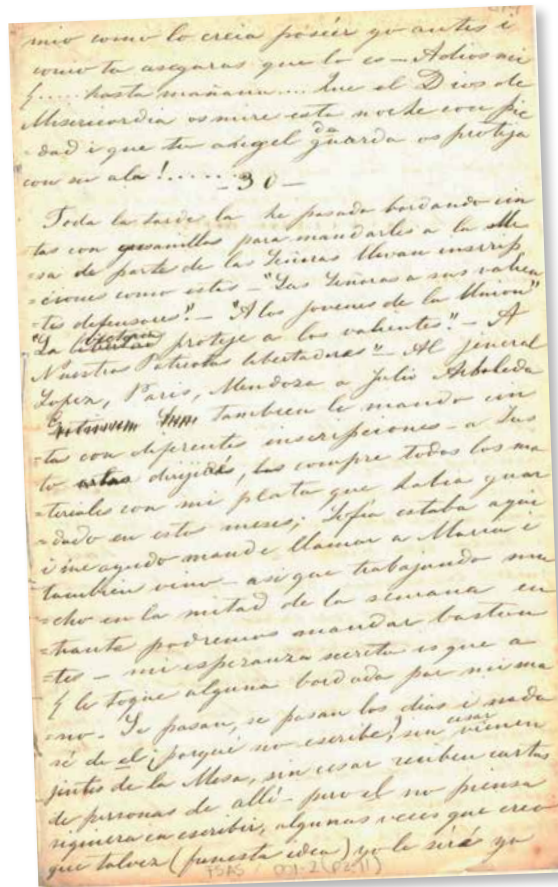 mio como lo creia poseér yo antes i
como tu aseguras que lo es – Adios mi
{..... hasta mañana.... Que el Dios de
Misericordia os mire esta noche con pie
=dad i que tu angel guarda da os proteja
con su ala!......
–30–
Toda la tarde la he pasado bordando cin
tas con gusanillos para mandarles a la Me
sa de parte de las Señoras llevan inscrip
=ciones como estas – "Las Señoras a sus valien
=tes defensores" – "A los jovenes de la Union"
"La Victoria proteje a los valientes" – A
Nuestros Patriotas libertadores" – Al jeneral
Lopez, Paris, Mendoza a Julio Arboleda
tambien le mando cin
=ta con diferentes inscripciones – a Jus
to dirijidas, las compre todos los ma
=teriales con mi plata que habia guar
=dado en estos meses; Sofia estaba aqui
i me ayudo mande llamar a Maria i
tambien vino – asi que trabajando mu
=cho en la mitad de la semana en
=trante podremos mandar bastan
=tes – mi esperanza secreta es que a
{ le toque alguna bordada por mi ma
=no. Se pasan, se pasan los dias i nada
sé de el; porqué no escribe, sin cesar vienen
jentes de la Mesa, sin cesar reciben cartas
de personas de allí – pero el no piensa
siquiera en escribir, algunas veces que creo
que talvez (funesta idea) yo le seré ya